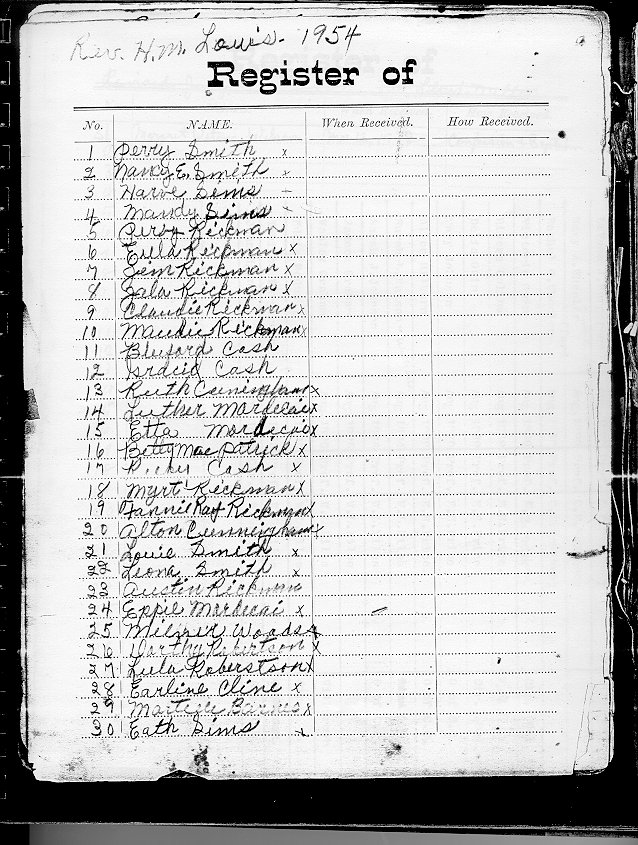 Rev. H.M. Louis - 1954
Register of
No. NAME. When Received. How Received.
1 Perry Smith x
2 Nancy E. Smith x
3 Harve Sims -
4 Mandy Sims -
5 Perby Rickman
6 Eula Rickman x
7 Jem Rickman x
8 Zala Rickman x
9 Claudie Rickman x
10 Maudie Rickman x
11 Bluford Cash
12 Cash
13 Ruth Cuningham x
14 Luther Mardecai x
15 Etta Mordecai x
16 Betty Mae Patrick x
17 Cash x
18 Myrt Rickman x
19 Fannie Ray Rickman x
20 Alton Cunningham x
21 Louie Smith x
22 Leona Smith x
23 Austin Rickman
24 Eppie Mordecai x
25 Milner Woods x
26 Dorthy Robertson x
27 Lula Roberstson x
28 Earline Cline x
29 Barnes x
30 Eath Sims x